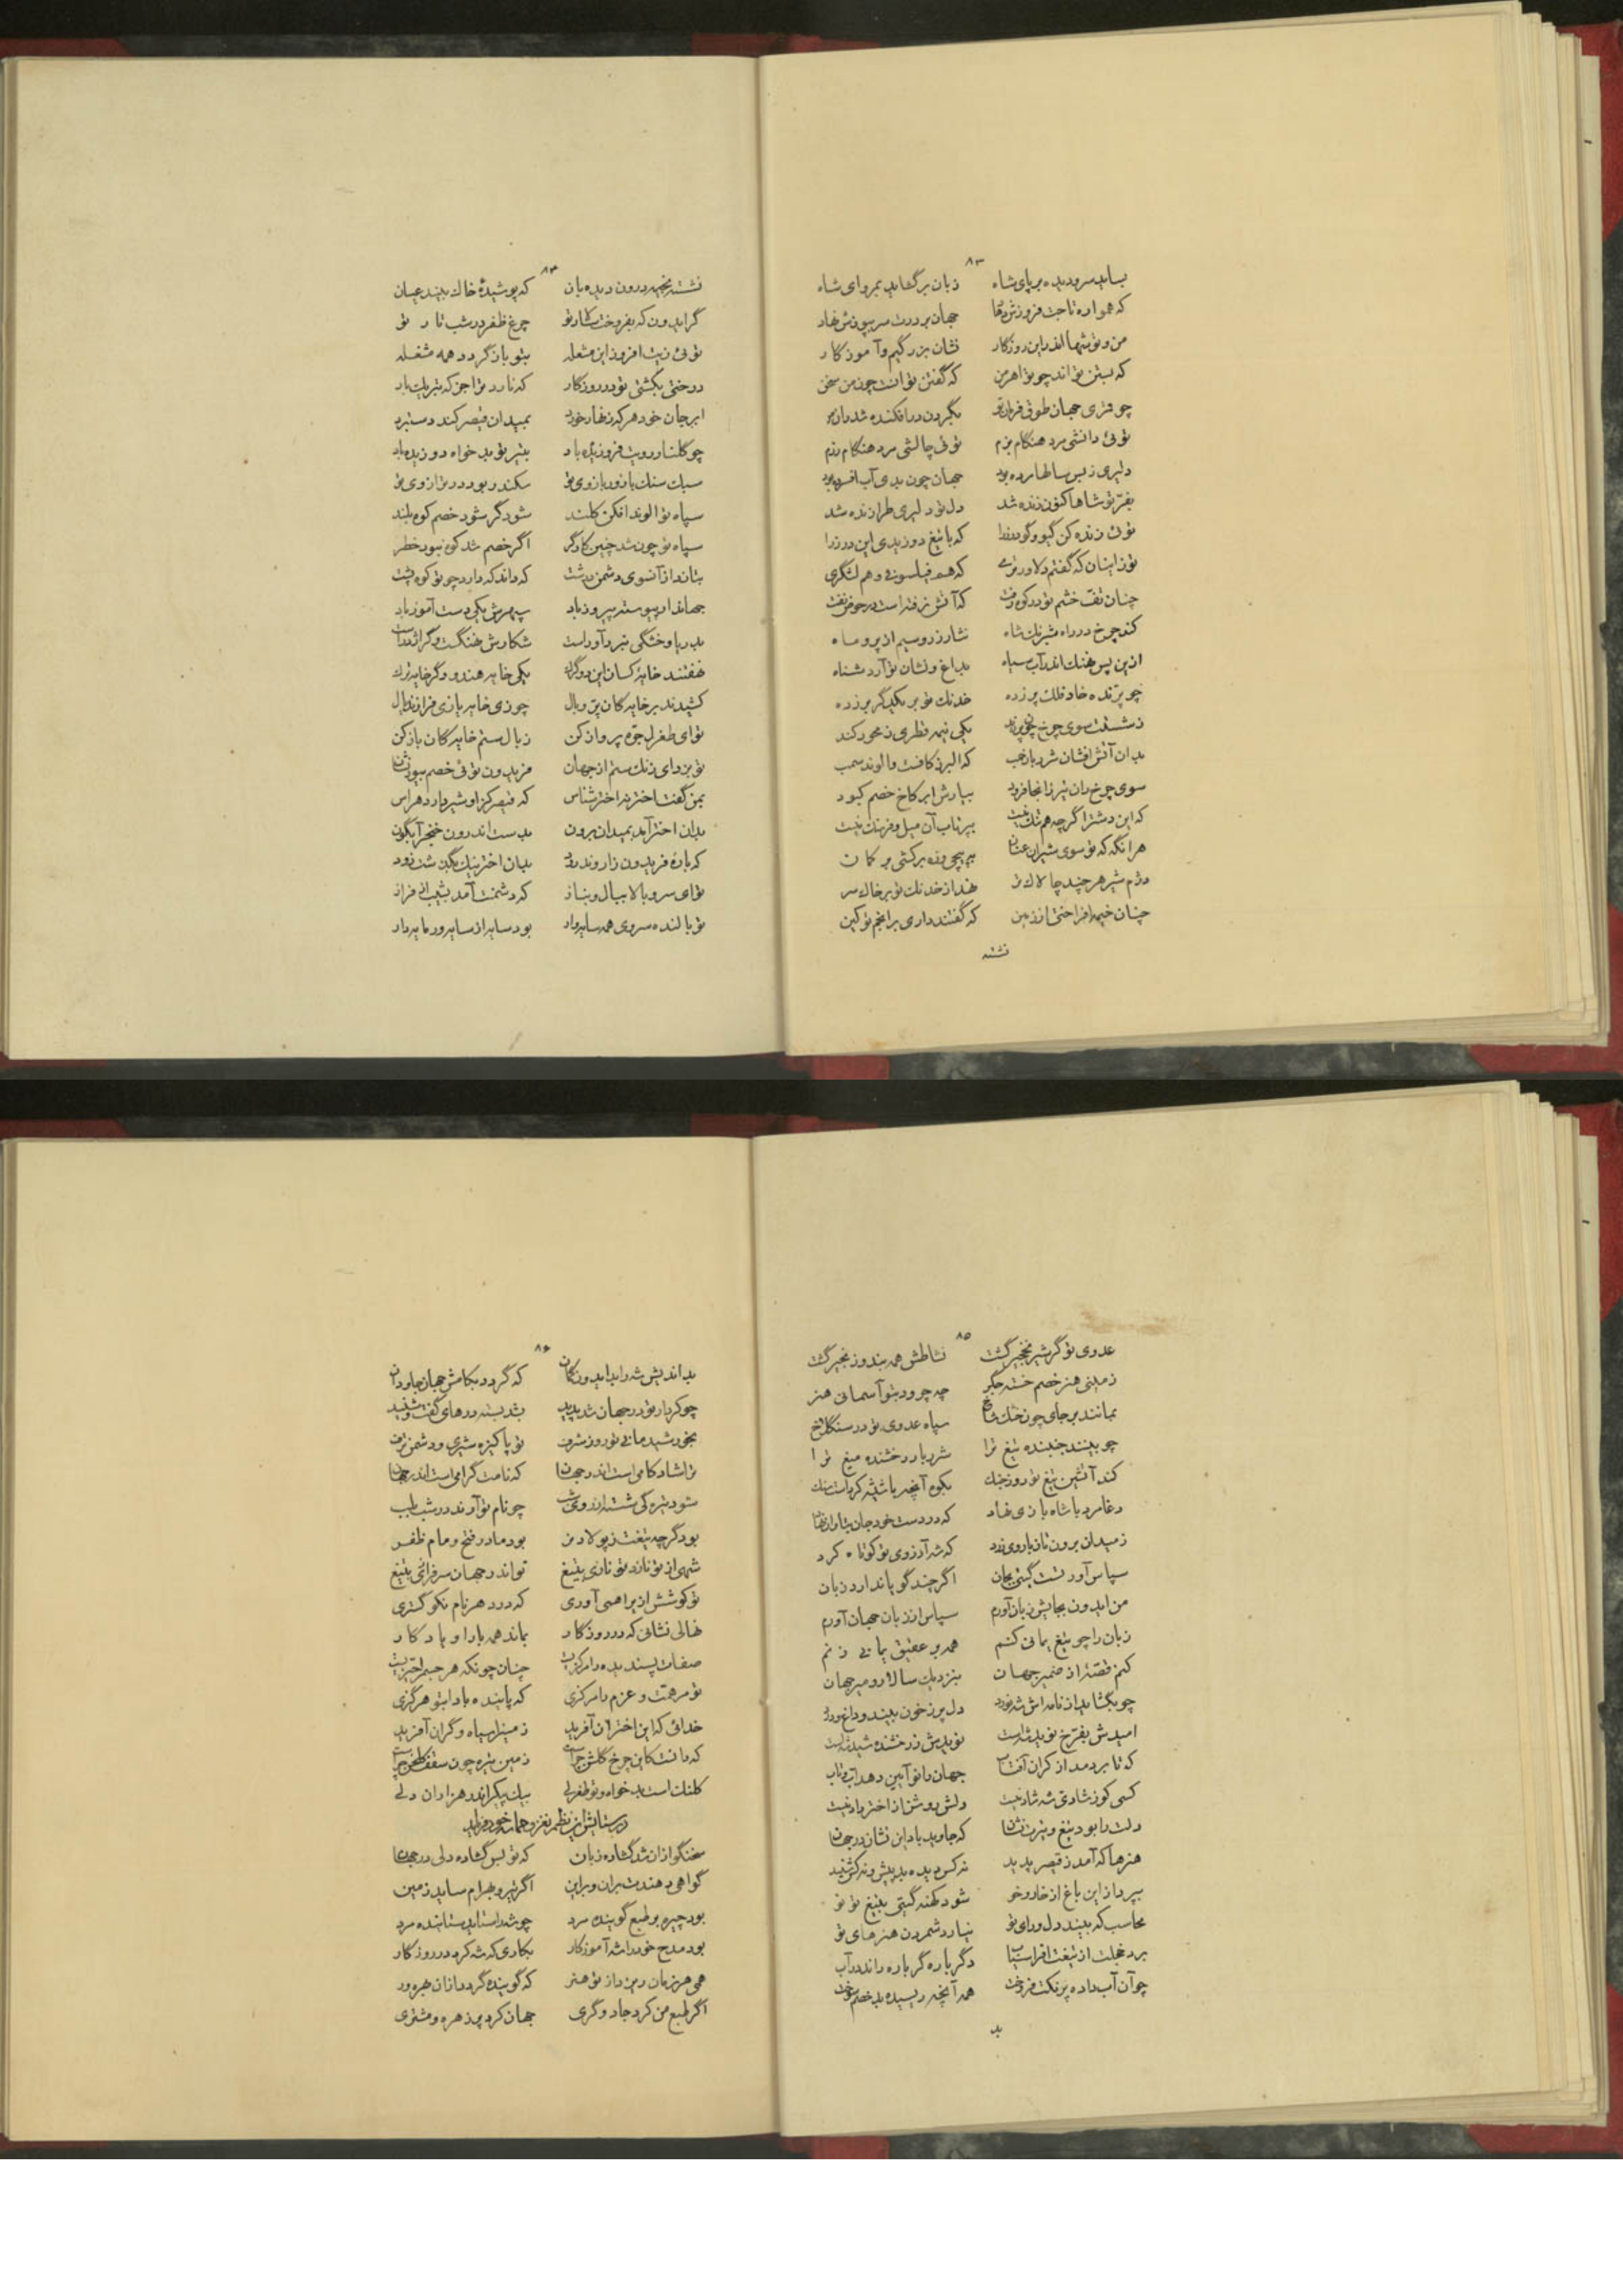 ۸۳
بساید سرو دیده بر پای شاه زبان برگشاید بمروای شاه
که همواره تاجت فروزش دهاد جهان بر درت سر بپوزش نهاد
من و تو تنها اندرین روزگار نشان بزرگیم و آموزگار
که بستن تواند چو تو اهرمن که گفتن توانست چون من سخن
چو فتری جهان طوق فرمان تو بگردن در افکنده شد
توئی دانشی مرد هنگام بزم توئی چالشی مرد هنگام رزم
دلیری ز بس سالها مرده بود جهان چون یدی آب افسرده بود
بفرّ تو شاها کنون زنده شد دل تو دلیری طرازنده شد
توئی زنده کن گیو و گودرز را که با تیغ دوزیدی این درز را
تو زاینسان که گفتم دلاور نرئی که هم فیلسوفی و هم لشگری
چنان تفّ خشم تو در کوه رفت که آتش گرفته است در
کند چرخ در راه شبرنگ شاه نثار زر و سیم از پر و ماه
ازین پس نهنگ اندر آب سیاه بداغ و نشان تو آرد شناه
چو پرّنده خاد فلک پر زده خدنگ تو بر یکدگر بر زده
ز شستت سوی چرخ چون پرزند یکی نیمه قطری ز محور کند
بدان آتش افشان شرر بار خمب که البرز کافت و الوند سمب
سوی چرخ ران تیر زانجا فرود ببارش ابر کاخ خصم کبود
که این دشت را گرچه هم تنگ نیست بپرتاب آن میل و فرسنگ نیست
هر آنگه که تو سوی شیران عنان بپیچی و زه برکشی بر کمان
دژم شیر هر چند چالاک تر نهد از خدنگ تو بر خاک سر
چنان خیمه افراختی از زمین که گفتند داری بر انجم تو کین
نشسته
۸۴
نشسته بخیمه درون دیده بان که پوشیدهٔ خاک بیند عیان
گر ایدون که بفروخت کار تو چرغ ظفر در شب تار تو
توئی زیت افروز این مشعله بتو باز گردد همه مشغله
درختی بکشتی تو در روزگار که نارد ترا جز که تبریک بار
ابر جان خود هر که زنهار خورد بمیدان قیصر کند دستبرد
چو گلنار رویت فروزنده باد بتیر تو بدخواه دوزیده باد
سبک سنگ بازور بازوی تو سکندر بود در ترازوی تو
سپاه تو الوند افکن کلند شود گر شود خصم کوه بلند
سپاه تو چون شد چنین کارگر اگر خصم شد کوه نبود خطر
بتاند از آنسوی دشمن گذشت که داند که دارد چو تو کوه پشت
جهاندار پیوسته پیروز باد سپهرش یکی دست آموز باد
بدریا و خشگی نبرد آور است شکارش نهنگست و گر اژدر است
نهفتند خایه کسان این دو گرگ یکی خایه هندو و گر خایه ترک
کشیدند بر خایه گان پرّ و بال چو زی خایه بازی فرازند یال
تو ای طغرل جرّه پرواز کن ز بال ستم خایه گان باز کن
تو بزدای زنگ ستم از جهان فریدون توئی خصم بیور نشان
بمن گفت اختر بد اختر شناس که قیصر کز او شیر دارد هراس
بدان اختر آید بمیدان برون بدست اندرون خنجر آبگون
که بارهٔ فریدون ز اروند رود بدان اختر نیک بگذشت زود
تو ای سرو بالا ببال و بناز که دشمنت آمد بشیب از فراز
تو بالنده سروی همه سایه دار بود سایه از سایه ور مایه دار
۸۵
عدوی تو گر شیر نخجیر گشت نشاطش همه بند و زنجیر گشت
زمینی هنر خصم خسته جگر چه چرود بتو آسمانی هنر
بمانند بر جای چون خشک شاخ سپاه عدوی تو در سنگلاخ
چو بینند جنبنده تیغ ترا شرربار درخشنده میغ ترا
کند آتشین تیغ تو روز جنگ بکوه آنچه با شیشه کرده است سنگ
دغا مرد با شاه بازی نهاد که در دست خود جان
ز میدان برون تاز یاروی زرد که شه آرزوی تو کوتاه کرد
سپاس آورد تست گیتی بجان اگر چند گویا ندارد زبان
من ایدون بجایش زبان آورم سپاس از زبان جهان آورم
زبان را چو تیغ یمانی کنم همه بر عقیق یمانی زنم
کنم قصّه از ضمیر جهان بنزدیک سالار و میر جهان
چو بگشاید از نامه اش شه نورد دل پر ز خون بیند و داغ و درد
امیدش بفرّخ نوید شه است نویدش ز رخشنده شید شه است
که تا بردمد از کران آفتاب جهان را نو آیین دهد آب و تاب
کسی کو ز شادی شه شاد نیست دلش روشن از اختر داد نیست
دلت را بود تیغ و نیزت نشان که جاوید باد این نشان در جهان
هنرها که آمد ز قیصر پدید نه کس دیده بد پیش و نه کس شنید
بپرداز این باغ از خار و خو شود کهنه گیتی بتیغ تو نو
محاسب که بیند دل و رای تو نیارد شمردن هنرهای تو
برد خجلت از تیغت افراسیاب دگر باره گر باره راند در آب
چو آن آب داده پرنگت فروخت همه آنچه ریسیده بد خصم سوخت
بد
۸۶
بداندیش شه را بد ایدون گمان که گردد بکامش جهان جاودان
چو کردار تو در جهان شد پدید بشد بسته درهای گفت و شنید
بخورشید مانی تو روز شرف تو پاکیزه شیری و دشمن
ترا شاد کامی است اندر جهان که نامت گرامی است اندر جهان
ستود تیرگی شسته از روی شب چو نام تو آرند در شب بلب
بود گرچه تیغت ز پولاد نر بود مادر فتح و مام ظفر
شهی از تو نازد تو نازی بتیغ تواند جهان سرفرازی بتیغ
تو کوشش از پیرامن آوری که در دهر نام نکو گستری
نهالی نشانی که در روزگار بماند همه بار او یادگار
صفات پسندیده را مرکز است چنان چونکه هر جسم را حیّز است
تو مر همّت و عزم را مرکزی که پاینده بادا بتو هر گزی
خدائی که این اختران آفرید زمین را سیاه و گران آفرید
که دانست کاین چرخ گلشن چراست زمین تیره چون سقف گلخن چراست
کلنگ است بدخواه و تو طغرلی بیک پیکر اندر هزاران دلی
در ستایش این نظم نغز و چامهٔ خود فرماید
سخنگو از آن شد گشاده زبان که تو بس گشاده دلی در جهان
گواهی دهندت بر ان و بر این اگر تیر و بهرام ساید زمین
بود چیره بر طبع گوینده مرد چو شه را ستاید ستاینده مرد
بود مدح خود را شه آموزگار بکاری که شه کرد در روزگار
همی هر زمان ریزد از تو هنر که گوینده گردد از آن بهره ور
اگر طبع من کرد جادوگری جهان کرد پر زهره و مشتری